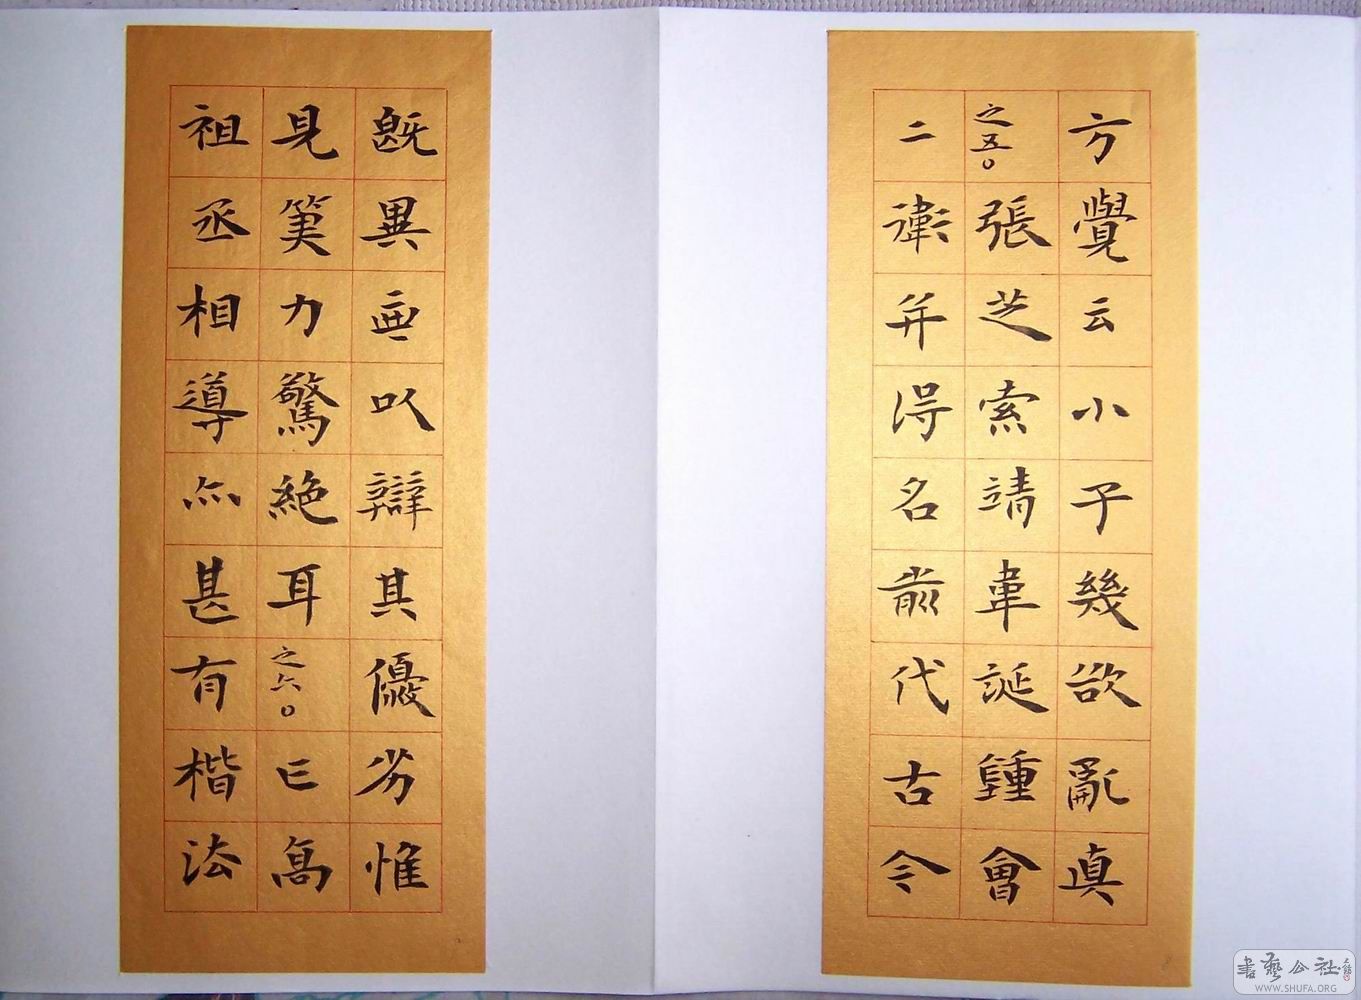 方覺云小子幾欲亂真
之五。張芝索靖韋誕鍾會
二衛并得名前代古今
既異無以辯其優劣惟
見筆力驚絕耳之六。已高
祖丞相導亦甚有楷法
書藝公社
WWW.SHUFA.ORG